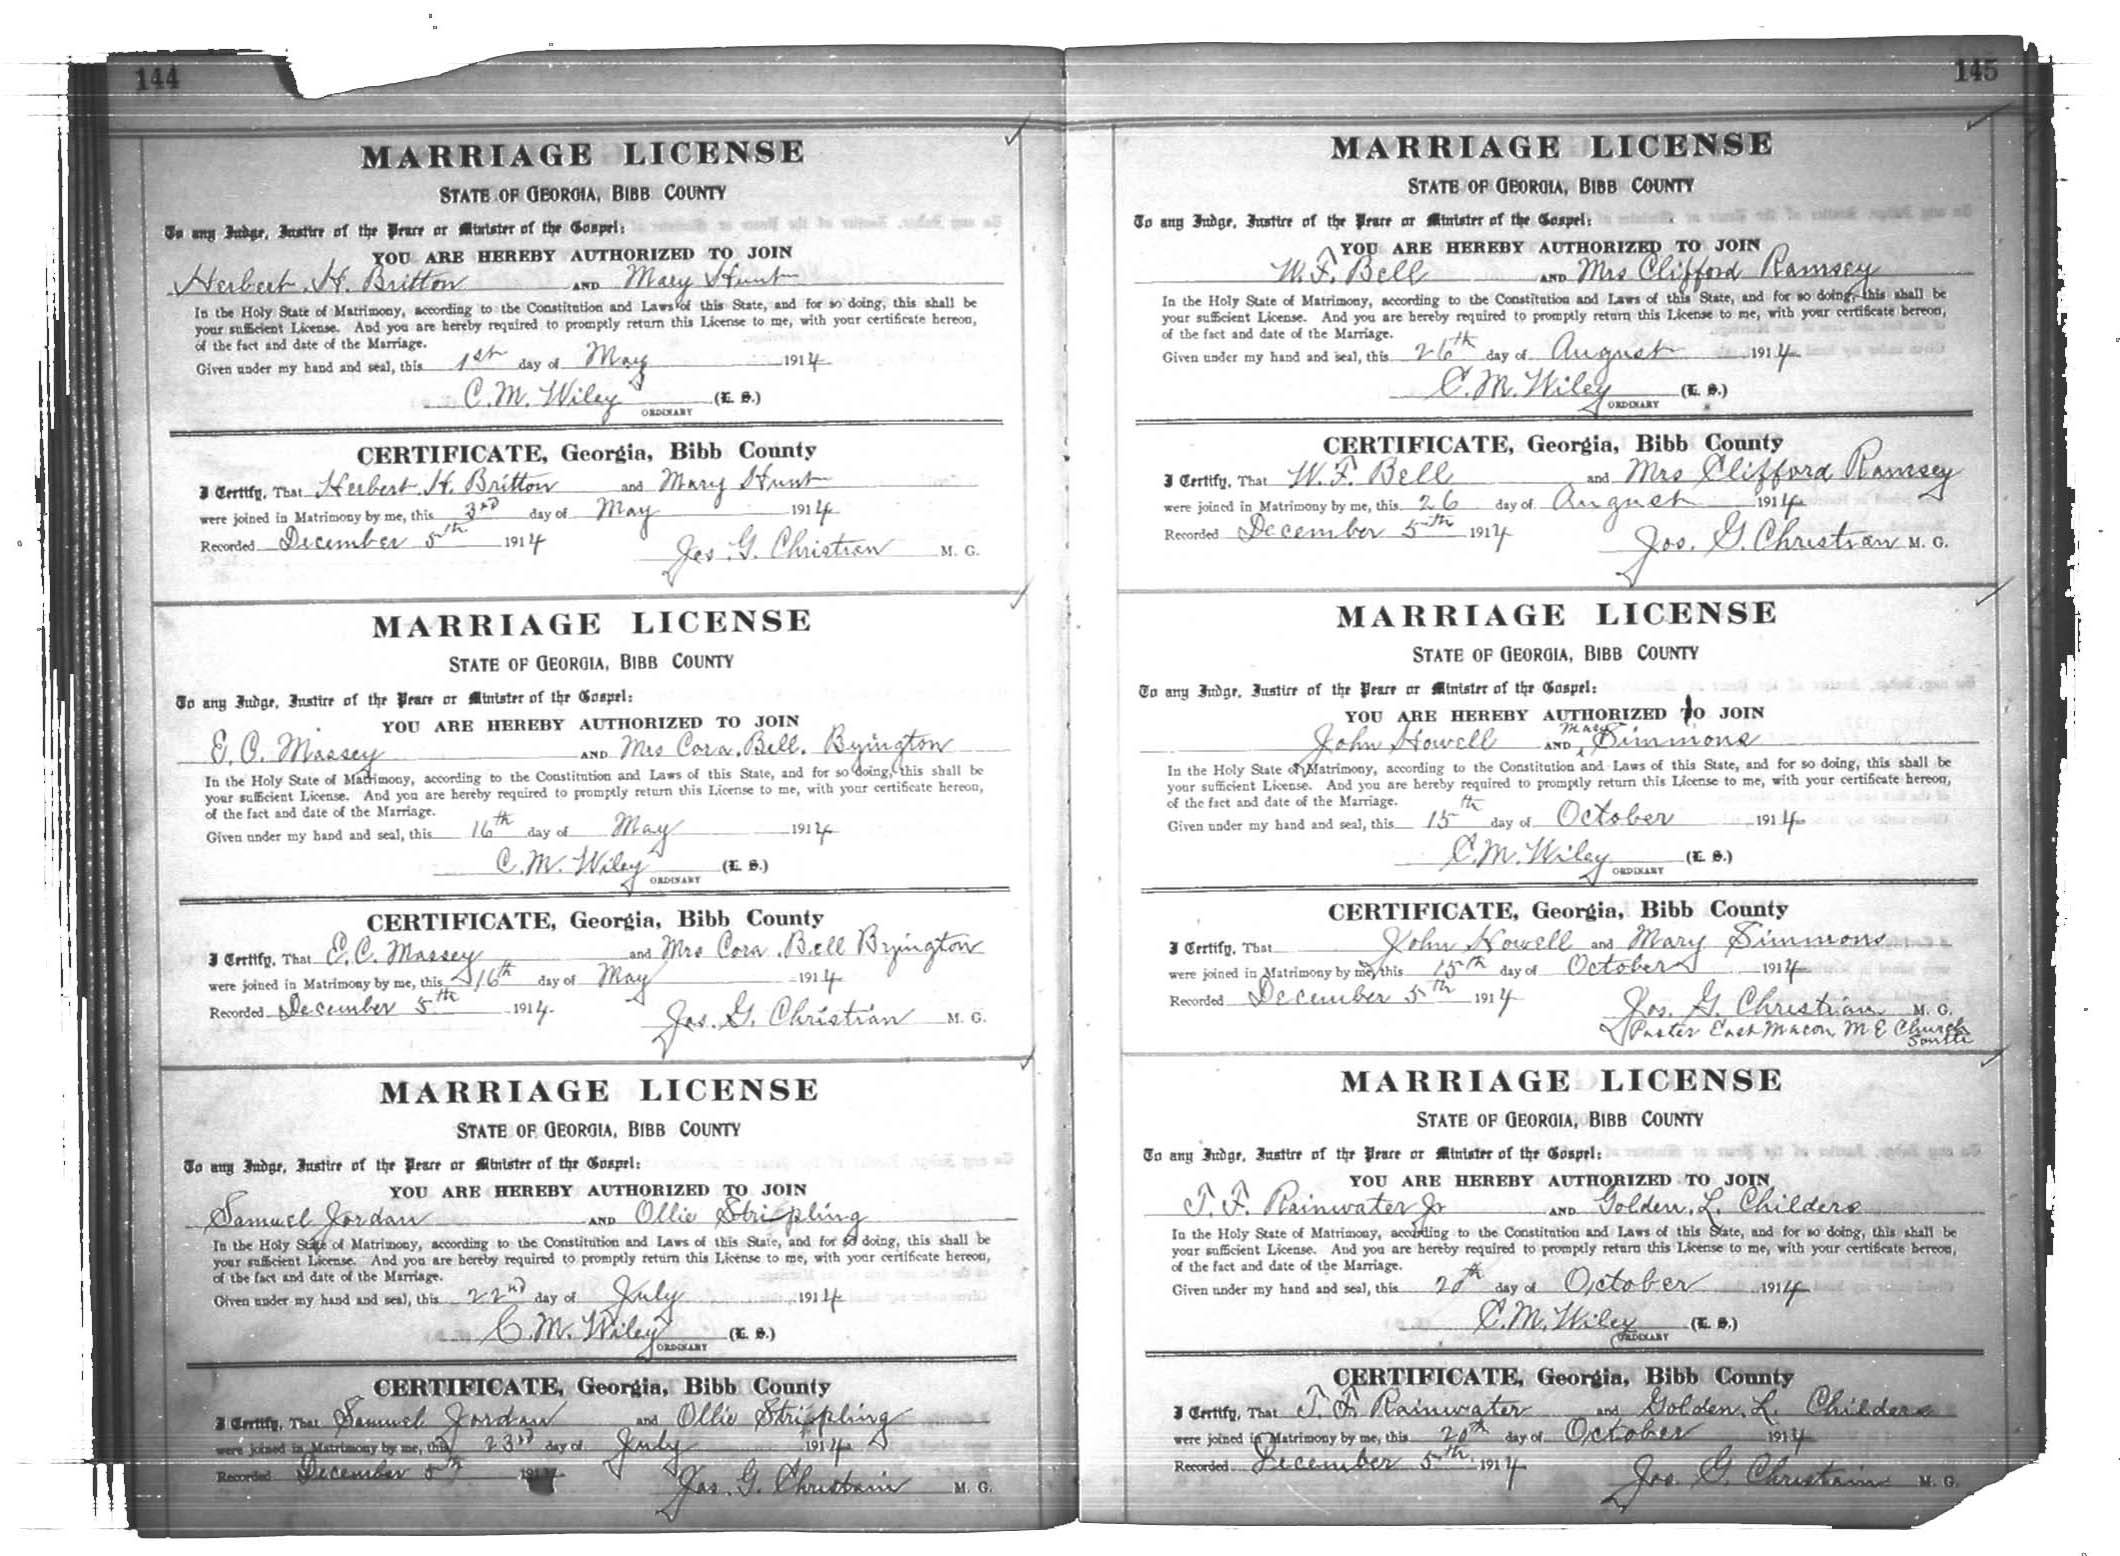 144
MARRIAGE LICENSE
STATE OF GEORGIA, BIBB COUNTY
To any Judge, Justice of the Peace or Minister of the Gospel:
YOU ARE HEREBY AUTHORIZED TO JOIN
Herbert. H. Britton AND Mary Hunt
In the Holy State of Matrimony, according to the Constitution and Laws of this State, and for so doing, this shall be
your sufficient License. And you are hereby required to promptly return this License to me, with your certificate hereon,
of the fact and date of the Marriage.
Given under my hand and seal, this 1st day of May 1914
C. M. Wiley (L. S.)
ORDINARY
CERTIFICATE, Georgia, Bibb County
I Certify, That Herbert. H. Britton and Mary Hunt
were joined in Matrimony by me, this 3rd day of May 1914
Recorded December 5th 1914 Jos. G. Christian M. G.
MARRIAGE LICENSE
STATE OF GEORGIA, BIBB COUNTY
To any Judge, Justice of the Peace or Minister of the Gospel:
YOU ARE HEREBY AUTHORIZED TO JOIN
E. C. Massey AND Mrs Cora. Bell. Byington
In the Holy State of Matrimony, according to the Constitution and Laws of this State, and for so doing, this shall be
your sufficient License. And you are hereby required to promptly return this License to me, with your certificate hereon,
of the fact and date of the Marriage.
Given under my hand and seal, this 16th day of May 1914
C. M. Wiley (L. S.)
ORDINARY
CERTIFICATE, Georgia, Bibb County
I Certify, That E. C. Massey and Mrs Cora. Bell Byington
were joined in Matrimony by me, this 16th day of May 1914
Recorded December 5th 1914 Jos. G. Christian M. G.
MARRIAGE LICENSE
STATE OF GEORGIA, BIBB COUNTY
To any Judge, Justice of the Peace or Minister of the Gospel:
YOU ARE HEREBY AUTHORIZED TO JOIN
Samuel Jordan AND Ollie Stripling
In the Holy State of Matrimony, according to the Constitution and Laws of this State, and for so doing, this shall be
your sufficient License. And you are hereby required to promptly return this License to me, with your certificate hereon,
of the fact and date of the Marriage.
Given under my hand and seal, this 22nd day of July 1914
C. M. Wiley (L. S.)
ORDINARY
CERTIFICATE, Georgia, Bibb County
I Certify, That Samuel Jordan and Ollie Stripling
were joined in Matrimony by me, this 23rd day of July 1914
Recorded December 5th 1914 Jos. G. Christain M. G.
145
MARRIAGE LICENSE
STATE OF GEORGIA, BIBB COUNTY
To any Judge, Justice of the Peace or Minister of the Gospel:
YOU ARE HEREBY AUTHORIZED TO JOIN
W. F. Bell AND Mrs Clifford Ramsey
In the Holy State of Matrimony, according to the Constitution and Laws of this State, and for so doing, this shall be
your sufficient License. And you are hereby required to promptly return this License to me, with your certificate hereon,
of the fact and date of the Marriage.
Given under my hand and seal, this 26th day of August 1914
C. M. Wiley (L. S.)
ORDINARY
CERTIFICATE, Georgia, Bibb County
I Certify, That W. F. Bell and Mrs Clifford Ramsey
were joined in Matrimony by me, this 26 day of August 1914
Recorded December 5th 1914 Jos. G. Christian M. G.
MARRIAGE LICENSE
STATE OF GEORGIA, BIBB COUNTY
To any Judge, Justice of the Peace or Minister of the Gospel:
YOU ARE HEREBY AUTHORIZED TO JOIN
John Howell AND Mary Simmons
In the Holy State of Matrimony, according to the Constitution and Laws of this State, and for so doing, this shall be
your sufficient License. And you are hereby required to promptly return this License to me, with your certificate hereon,
of the fact and date of the Marriage.
Given under my hand and seal, this 15th day of October 1914
C. M. Wiley (L. S.)
ORDINARY
CERTIFICATE, Georgia, Bibb County
I Certify, That John Howell and Mary Simmons
were joined in Matrimony by me, this 15th day of October 1914
Recorded December 5th 1914 Jos. G. Christian M. G.
Paster East Macon M E Church
South
MARRIAGE LICENSE
STATE OF GEORGIA, BIBB COUNTY
To any Judge, Justice of the Peace or Minister of the Gospel:
YOU ARE HEREBY AUTHORIZED TO JOIN
T. F. Rainwater Jr AND Golden. L. Childers
In the Holy State of Matrimony, according to the Constitution and Laws of this State, and for so doing, this shall be
your sufficient License. And you are hereby required to promptly return this License to me, with your certificate hereon,
of the fact and date of the Marriage.
Given under my hand and seal, this 20th day of October 1914
C. M. Wiley (L. S.)
ORDINARY
CERTIFICATE, Georgia, Bibb County
I Certify, That T. F. Rainwater and Golden. L. Childers
were joined in Matrimony by me, this 20th day of October 1914
Recorded December 5th 1914 Jos. G. Christain M. G.